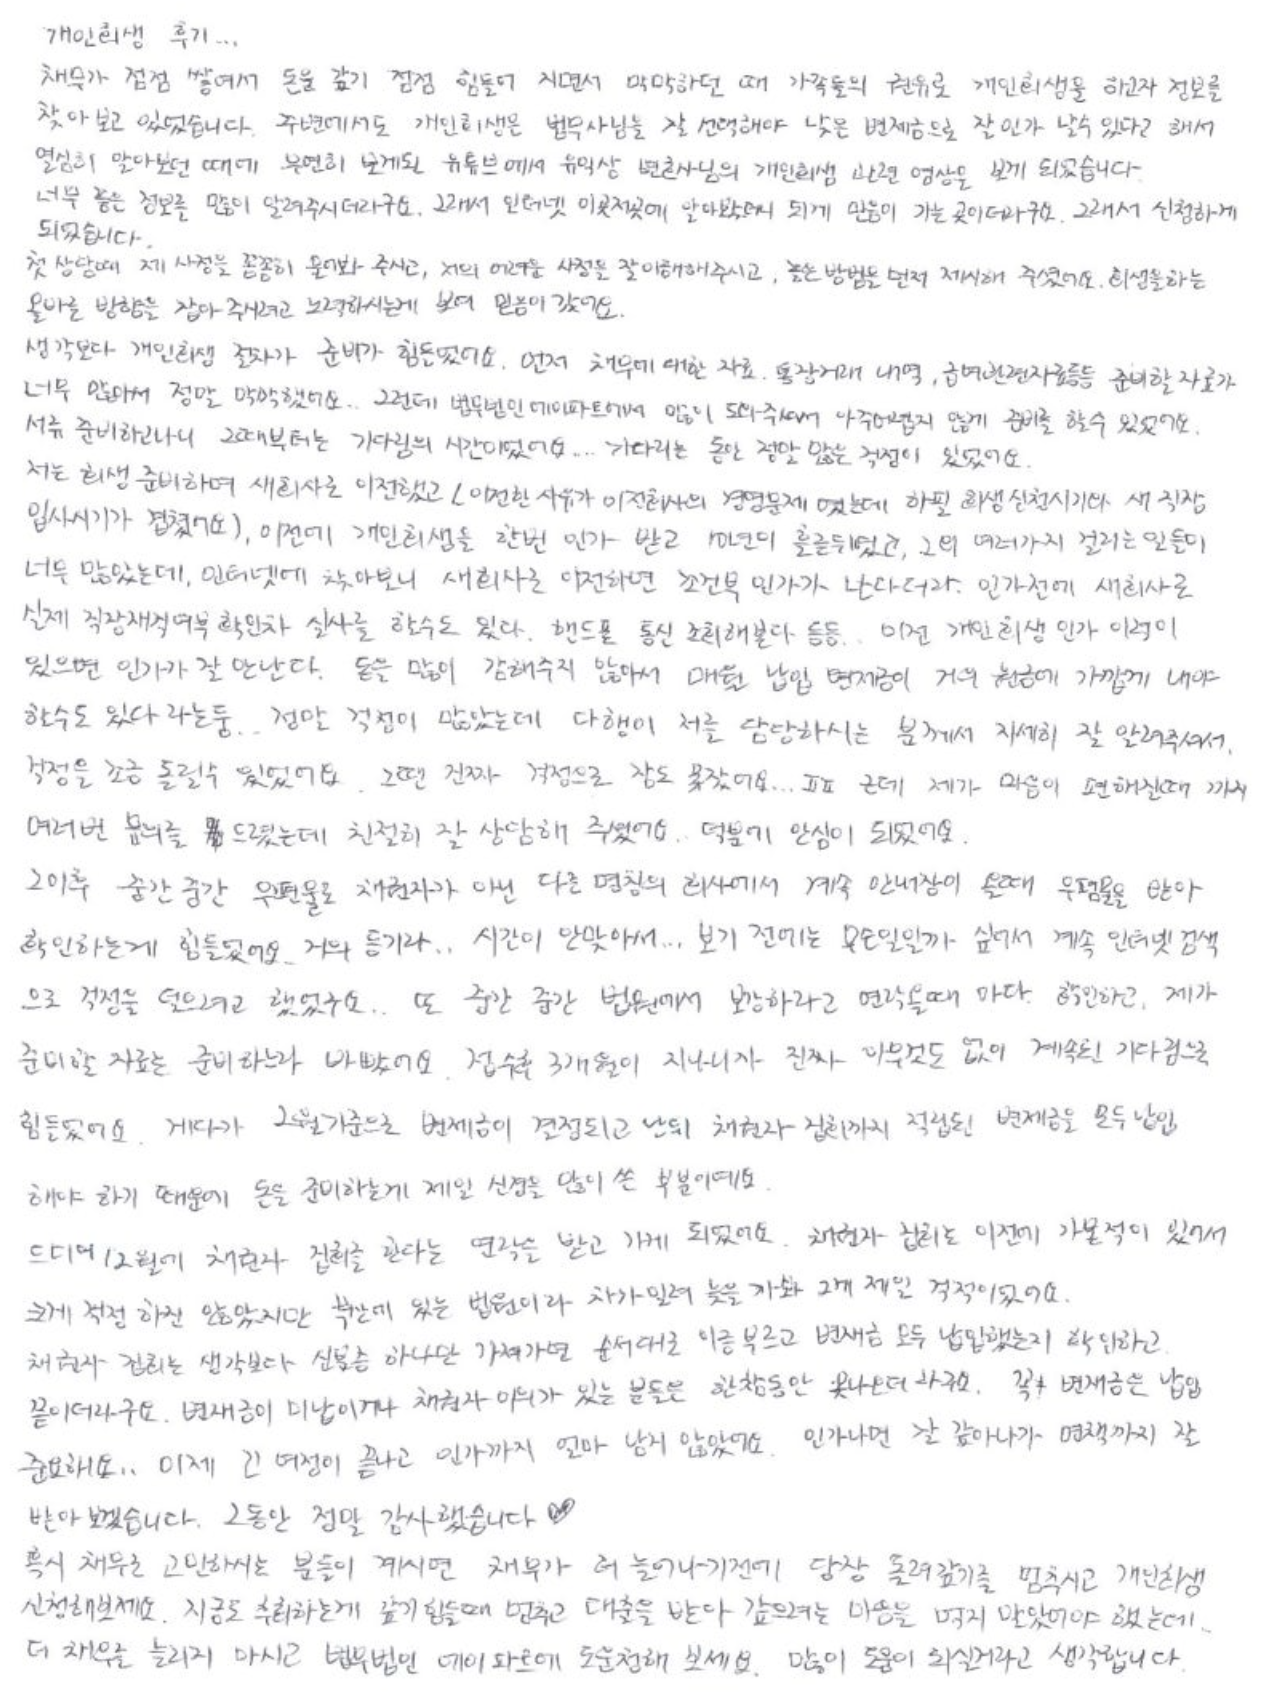 개인회생 후기...
채무가 점점 쌓여서 돈을 갚기 점점 힘들어 지면서 막막하던 때 가족들의 권유로 개인회생을 하고자 정보를
찾아보고 있었습니다. 주변에서도 개인회생은 법무사님을 잘 선택해야 낮은 변제금으로 잘 인가 날수 있다고 해서
열심히 알아보던 때에 우연히 보게된 유튜브에서 유익상 변호사님의 개인회생 관련 영상을 보게 되었습니다.
너무 좋은 정보를 많이 알려주시더라구요. 그래서 인터넷 이곳저곳에 알아봤더니 되게 믿음이 가는 곳이더라구요. 그래서 신청하게
되었습니다.
첫 상담때 제 사정을 꼼꼼히 물어봐 주시고, 저의 어려운 사정을 잘 이해해주시고, 좋은 방법을 먼저 제시해 주셨어요. 회생을하는
올바른 방향을 잡아 주시려고 노력하시는게 보여 믿음이 갔어요.
생각보다 개인회생 절차가 준비가 힘들었어요. 먼저 채무에 대한 자료. 통장거래 내역, 급여관련자료등등 준비할 자료가
너무 많아서 정말 막막했어요.. 그런데 법무법인 에이파트에서 많이 도와주셔서 아주어렵지 않게 준비를 할수 있었어요.
서류 준비하고나니 그때부터는 기다림의 시간이었어요.... 기다리는 동안 정말 많은 걱정이 있었어요.
저는 회생 준비하며 새회사로 이전했고 (이전한 사유가 이전회사의 경영문제 였는데 하필 회생신청시기와 새 직장
입사시기가 겹쳤어요), 이전에 개인회생을 한번 인가 받고 10년이 흘른뒤였고, 그외 여러가지 걸리는 일들이
너무 많았는데, 인터넷에 찾아보니 새회사로 이전하면 조건부 인가가 난다더라. 인가전에 새회사로
실제 직장재직여부 확인차 실사를 할수도 있다. 핸드폰 통신 조회해본다 등등.. 이전 개인회생 인가 이력이
있으면 인가가 잘 안난다. 돈을 많이 감해주지 않아서 매월 납입 변제금이 거의 원금에 가깝게 내야
할수도 있다 라는둥.. 정말 걱정이 많았는데 다행이 저를 담당하시는 분께서 자세히 잘 알려주셔서,
걱정을 조금 돌릴수 있었어요. 그땐 진짜 걱정으로 잠도 못잤어요... ㅠㅠ 근데 제가 마음이 편해질때 까지
여러번 문의를 드렸는데 친절히 잘 상담해 주셨어요.. 덕분에 안심이 되었어요.
그이후 중간중간 우편물로 채권자가 아닌 다른 명칭의 회사에서 계속 안내장이 올때 우편물을 받아
확인하는게 힘들었어요. 거의 등기라.. 시간이 안맞아서... 보기 전에는 무슨일일까 싶어서 계속 인터넷 검색
으로 걱정을 덜으려고 했었구요.. 또 중간 중간 법원에서 보강하라고 연락올때 마다. 확인하고, 제가
준비할 자료는 준비하느라 바빴어요. 접수후 3개월이 지나니까 진짜 아무것도 없이 계속된 기다림으로
힘들었어요. 게다가 2월기준으로 변제금이 결정되고 난뒤 채권자 집회까지 적립된 변제금을 모두 납입
해야 하기 때문에 돈을 준비하는게 제일 신경을 많이 쓴 부분이에요.
드디어 12월에 채권자 집회를 한다는 연락을 받고 가게 되었어요. 채권자 집회는 이전에 가본적이 있어서
크게 걱정 하진 않았지만 부산에 있는 법원이라 차가밀려 늦을 까봐 그게 제일 걱정이었어요.
채권자 집회는 생각보다 신분증 하나만 가져가면 순서대로 이름 부르고 변재금 모두 납입했는지 확인하고
끝이더라구요. 변재금이 미납이거나 채권자 이의가 있는 분들은 한참동안 못나오더라구요. 꼭 변재금은 납입
중요해요.. 이제 긴 여정이 끝나고 인가까지 얼마 남지 않았어요. 인가나면 잘 갚아나가 면책까지 잘
받아보겠습니다. 그동안 정말 감사했습니다 ♡
혹시 채무로 고민하시는 분들이 계시면 채무가 더 늘어나기전에 당장 돌려갚기를 멈추시고 개인회생
신청해보세요. 지금도 후회하는게 갚기 힘들때 멈추고 대출을 받아 갚으려는 마음을 먹지 말았어야 했는데..
더 채무를 늘리지 마시고 법무법인 에이파트에 도움청해 보세요. 많이 도움이 되실거라고 생각합니다.